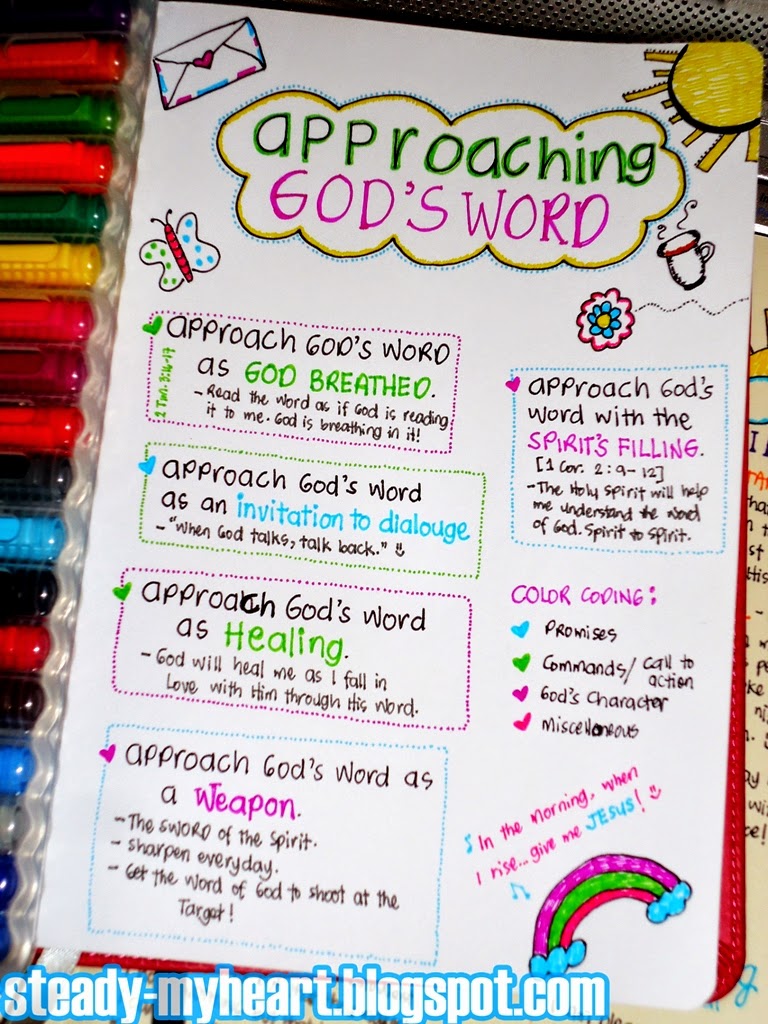 approaching
GOD'S WORD
approach GOD'S WORD
as GOD BREATHED.
2 Tim. 3:16-17
- Read the word as if God is reading
it to me. God is breathing in it!
approach God's word
as an invitation to dialouge
- "When God talks, talk back."
approach God's word
as Healing.
- God will heal me as I fall in
Love with Him through His Word.
approach God's Word as
a Weapon.
- The SWORD of the Spirit.
- sharpen everyday.
- Get the Word of God to shoot at the
Target!
approach God's
word with the
SPIRIT'S FILLING.
[1 Cor. 2:9-12]
- The Holy Spirit will help
me understand the Word
of God. Spirit to Spirit.
COLOR CODING:
Promises
Commands/ call to
action
God's Character
Miscellaneous
In the morning, when
I rise... give me JESUS!
steady-myheart.blogspot.com